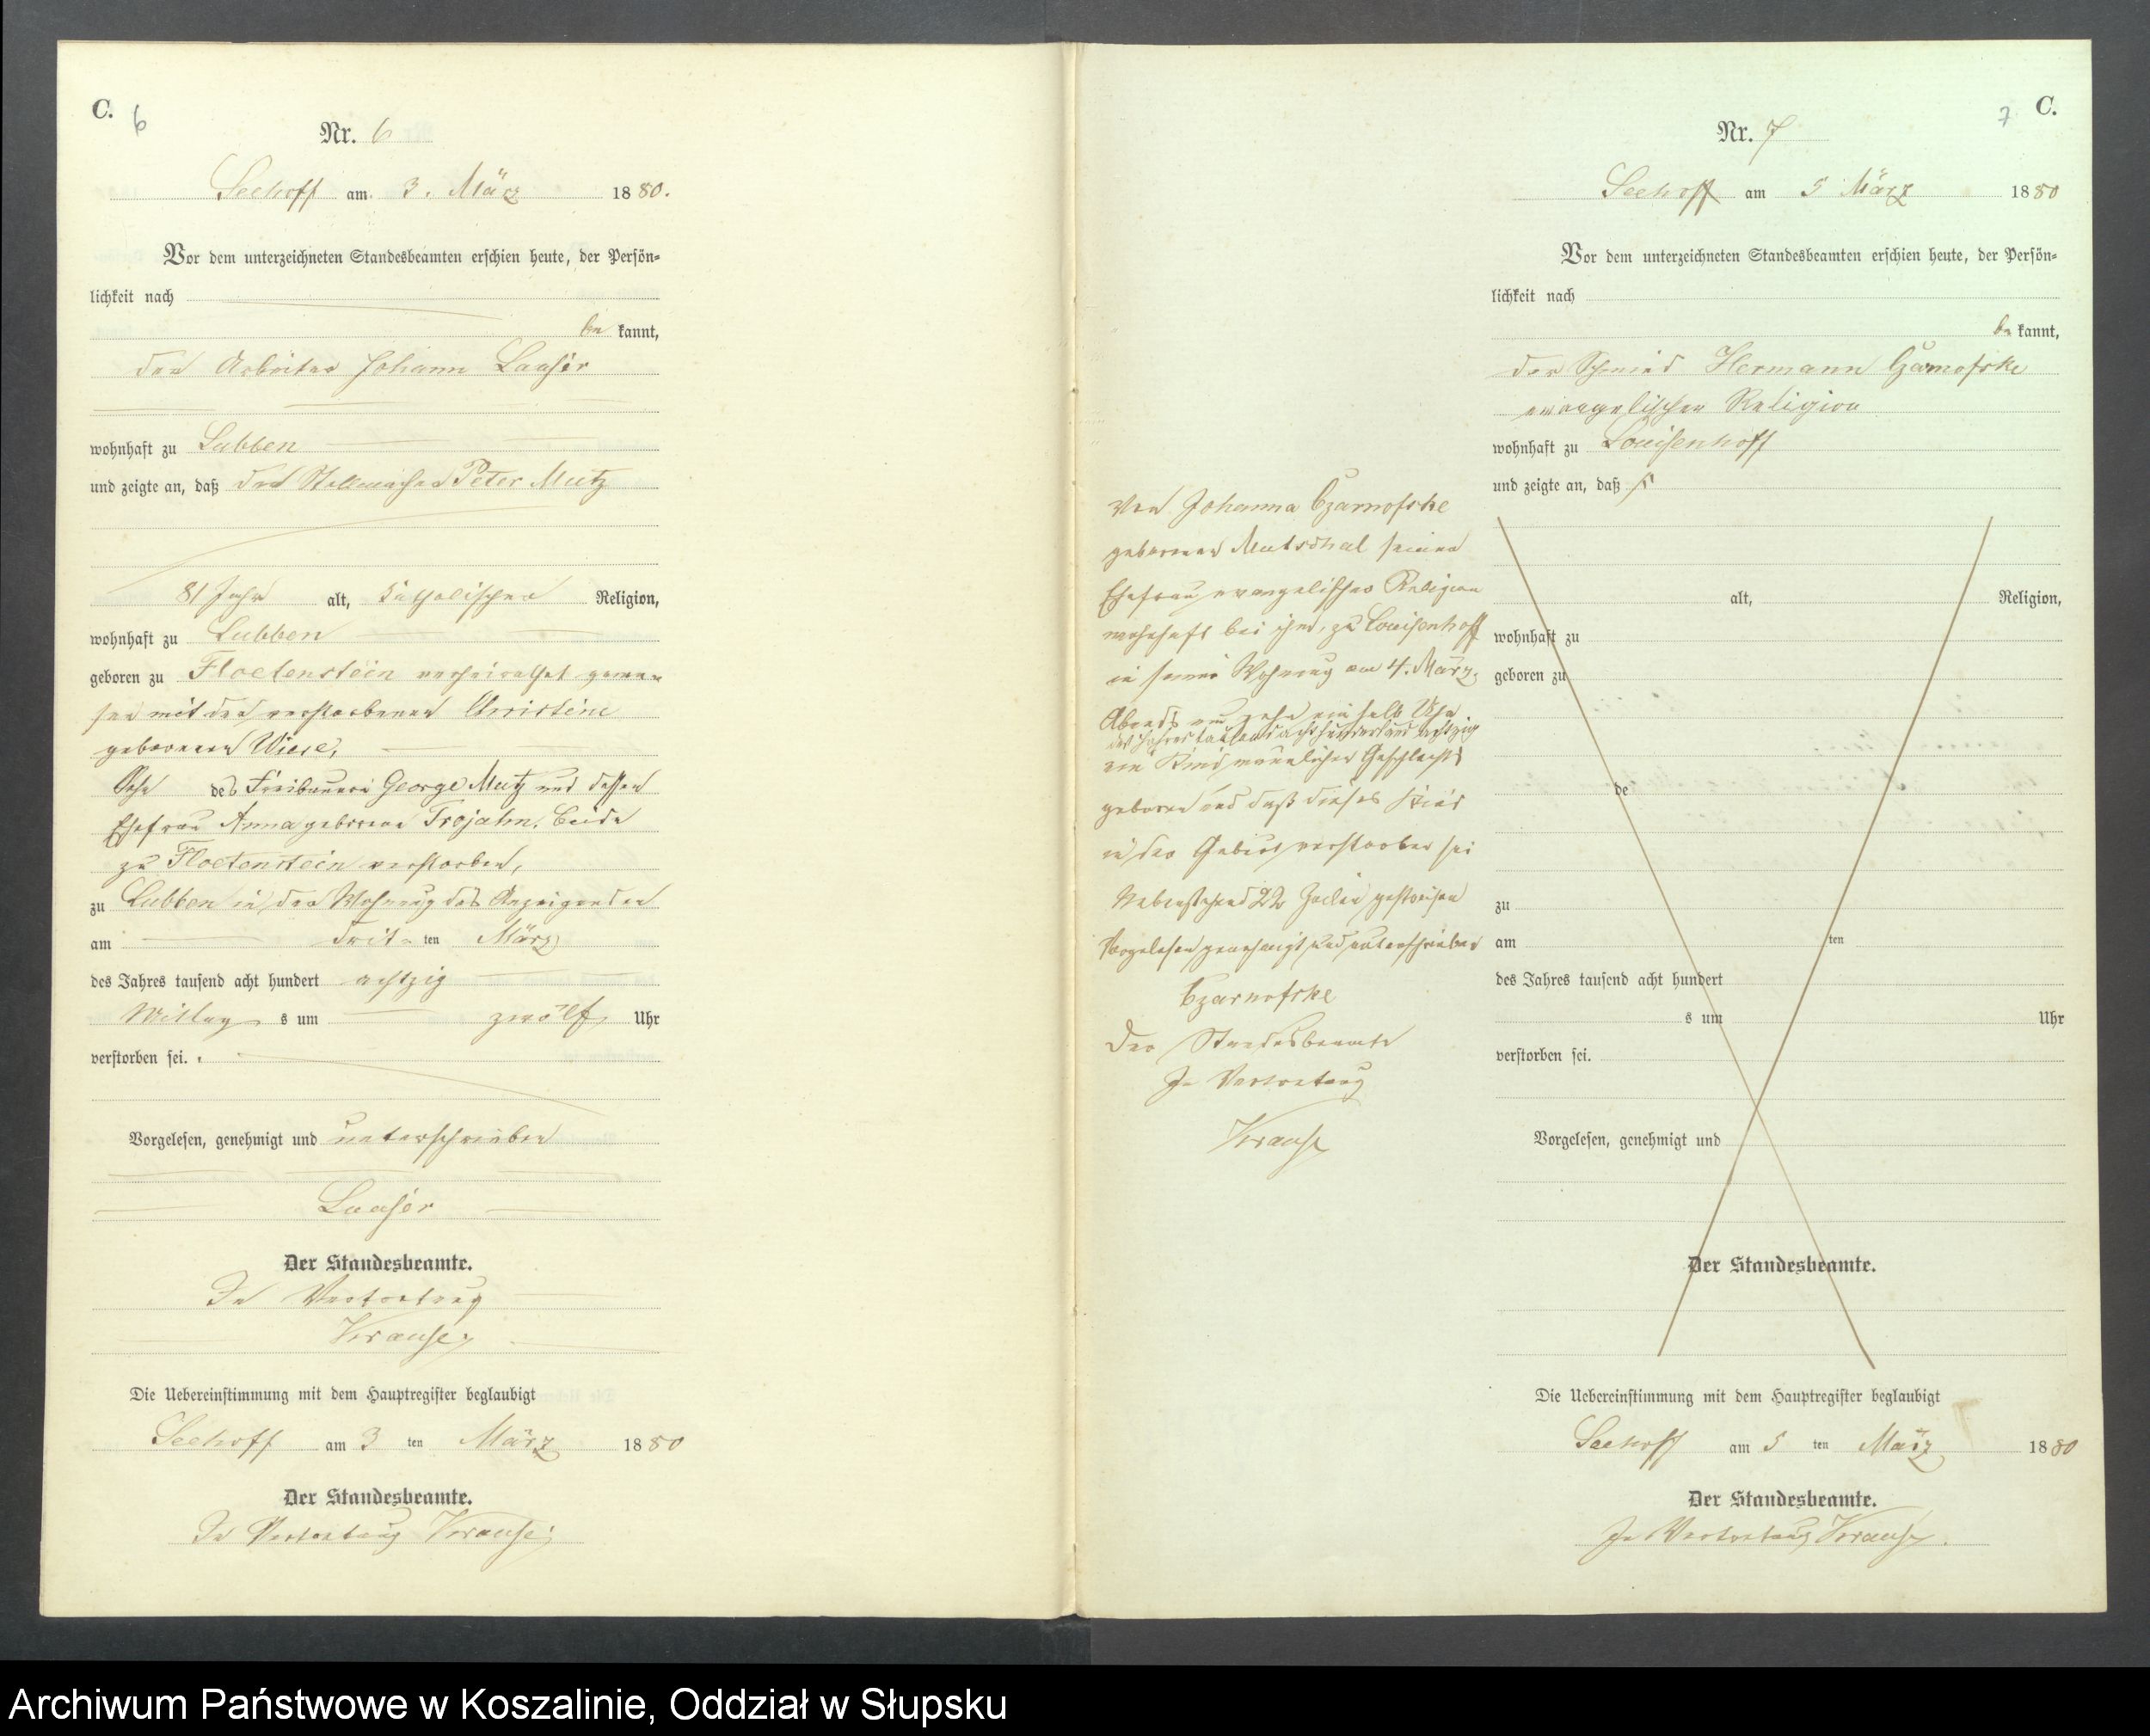 C.
6
Nr. 6
Seehoff am 3. März 1880.
Vor dem unterzeichneten Standesbeamten erschien heute, der Persön-
lichkeit nach
be kannt,
der Arbeiter Johann Laaser
wohnhaft zu Lubben
und zeigte an, daß der Stellmacher Peter Mutz
81 Jahr alt, katholischer Religion,
wohnhaft zu Lubben
geboren zu Floetenstein verheirathet gewe-
sen mit der verstorbenen Christine
geborenen Wiese,
Sohn des Freibauern George Mutz und dessen
Ehefrau Anna geborene Trojahn, beide
zu Floetenstein verstorben,
zu Lubben in der Wohnung des Anzeigenden
am drit- ten März
des Jahres tausend acht hundert achtzig
Mittag s um zwölf Uhr
verstorben sei.
Vorgelesen, genehmigt und unterschrieben
Laaser
Der Standesbeamte.
In Vertretung
Krause
Die Uebereinstimmung mit dem Hauptregister beglaubigt
Seehoff am 3 ten März 1880
Der Standesbeamte.
In Vertretung Krause
7 C.
Nr. 7
Seehoff am 5 März 1880
Vor dem unterzeichneten Standesbeamten erschien heute, der Persön-
lichkeit nach
be kannt,
der Schmied Hermann Czarnofske
evangelischer Religion
wohnhaft zu Louisenhoff
und zeigte an, daß
von Johanna Czarnofske
geborenen Mutschal seiner
Ehefrau evangelischer Religion
wohnhaft bei ihm, zu Louisenhoff
in seiner Wohnung am 4. März
Abends um zehn ein halb Uhr
des Jahres tausend acht hundert und achtzig
ein Kind männlichen Geschlechts
geboren und daß dieses Kind
in der Geburt verstorben sei
Nebenstehend 22 Zeilen gestrichen
Vorgelesen genehmigt und unterschrieben
Czarnofske
Der Standesbeamte
In Vertretung
Krause
alt, Religion,
wohnhaft zu
geboren zu
de
zu
am ten
des Jahres tausend acht hundert
s um Uhr
verstorben sei.
Vorgelesen, genehmigt und
Der Standesbeamte.
Die Uebereinstimmung mit dem Hauptregister beglaubigt
Seehoff am 5 ten März 1880
Der Standesbeamte.
In Vertretung Krause.
Archiwum Państwowe w Koszalinie, Oddział w Słupsku